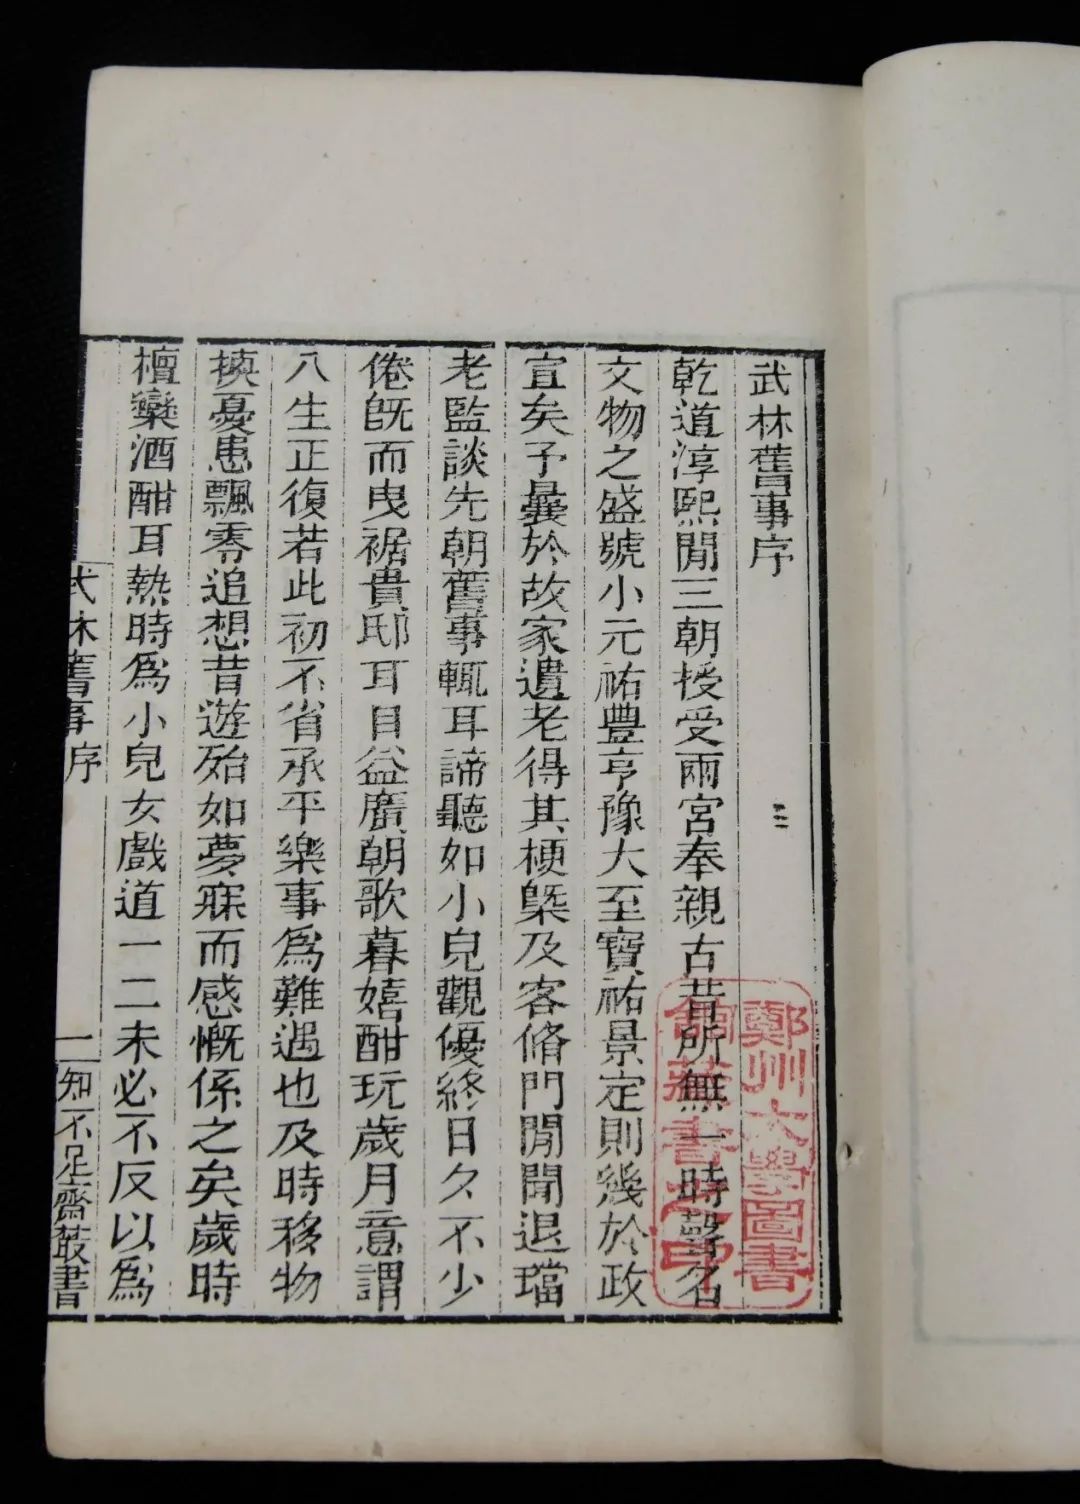 武林舊事序
乾道淳熙閒三朝授受兩宮奉親古昔所無一時聲名
文物之盛號小元祐豐亨豫大至寶祐景定則幾於政
宣矣予曩於故家遺老得其梗槩及客脩門閒聞退璫
老監談先朝舊事輒耳諦聽如小兒觀優終日久不少
倦旣而曳裾貴邸耳目益廣朝歌暮嬉酣玩歲月意謂
人生正復若此初不省承平樂事爲難遇也及時移物
換憂患飄零追想昔遊殆如夢寐而感慨係之矣歲時
檀欒酒酣耳熱時爲小兒女戲道一二未必不反以爲
武林舊事序
一
知不足齋叢書
鄭州大學圖書
館藏書之印